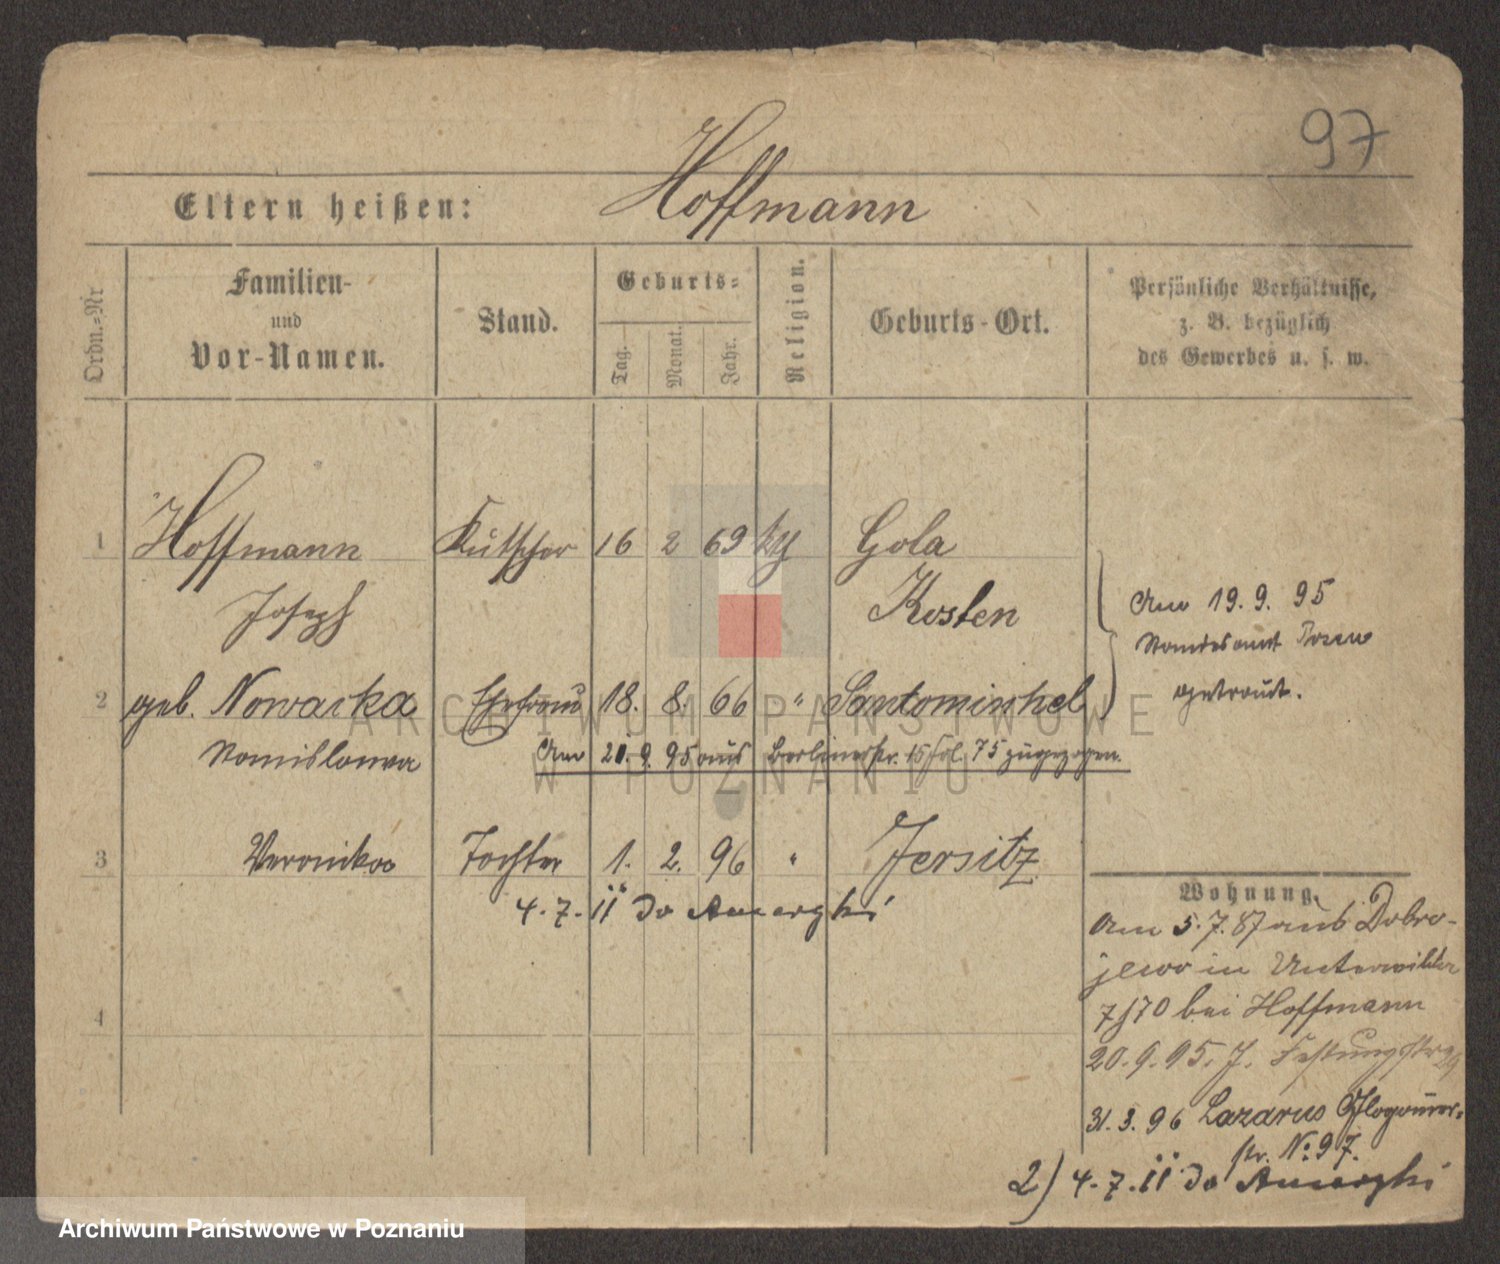 97
Eltern heißen: Hoffmann
Ordn.-Nr
Familien-
und
Vor-Namen.
Stand.
Geburts-
Tag.
Monat.
Jahr.
Religion.
Geburts-Ort.
Persönliche Verhältnisse,
z. B. bezüglich
des Gewerbes u. s. w.
1 Hoffmann Kutscher 16 2 69 kt Gola
Joseph Kosten
Am 19. 9. 95
Standesamt Posen
getraut.
2 geb. Nowacka Ehefrau 18. 8. 66 " Santomischel
Stanislawa
Am 20. 9. 95 aus Berlinerstr. 15 fol. 75 zugezogen.
3 Veronika Tochter 1. 2. 96 " Jersitz
4. 7. 11 do Ameryki
4
Wohnung.
Am 5. 7. 87 aus Dobro-
jewo in Unterwilda
7/70 bei Hoffmann
20. 9. 95. J. Festungsstr
31. 3. 96 Lazarus Glogauer-
str. No 97.
2) 4. 7. 11 do Ameryki
ARCHIWUM PAŃSTWOWE
W POZNANIU
Archiwum Państwowe w Poznaniu